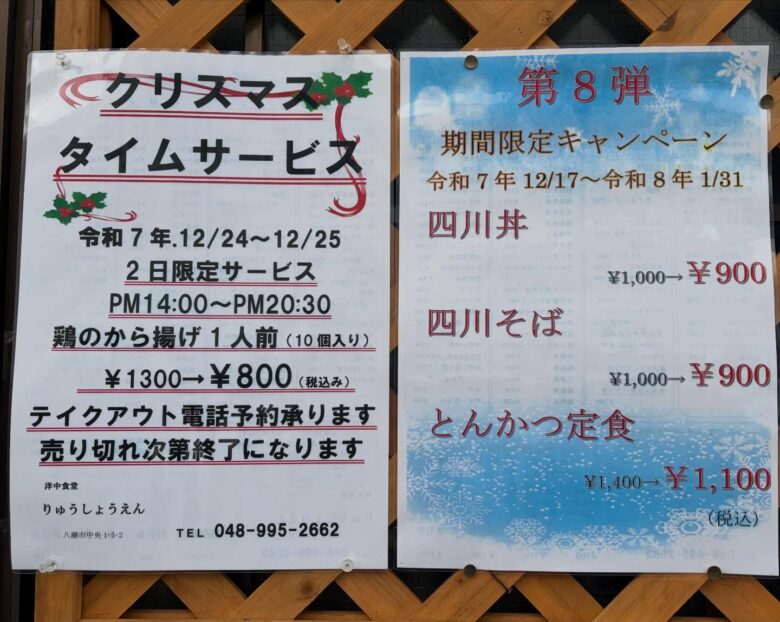 クリスマス
タイムサービス
令和7年.12/24～12/25
2日限定サービス
PM14:00～PM20:30
鶏のから揚げ1人前（10個入り）
¥1300→¥800（税込み）
テイクアウト電話予約承ります
売り切れ次第終了になります
洋中食堂
りゅうしょうえん
八潮市中央1-5-2
TEL 048-995-2662
第8弾
期間限定キャンペーン
令和7年12/17～令和8年1/31
四川丼
¥1,000→¥900
四川そば
¥1,000→¥900
とんかつ定食
¥1,400→¥1,100
（税込）